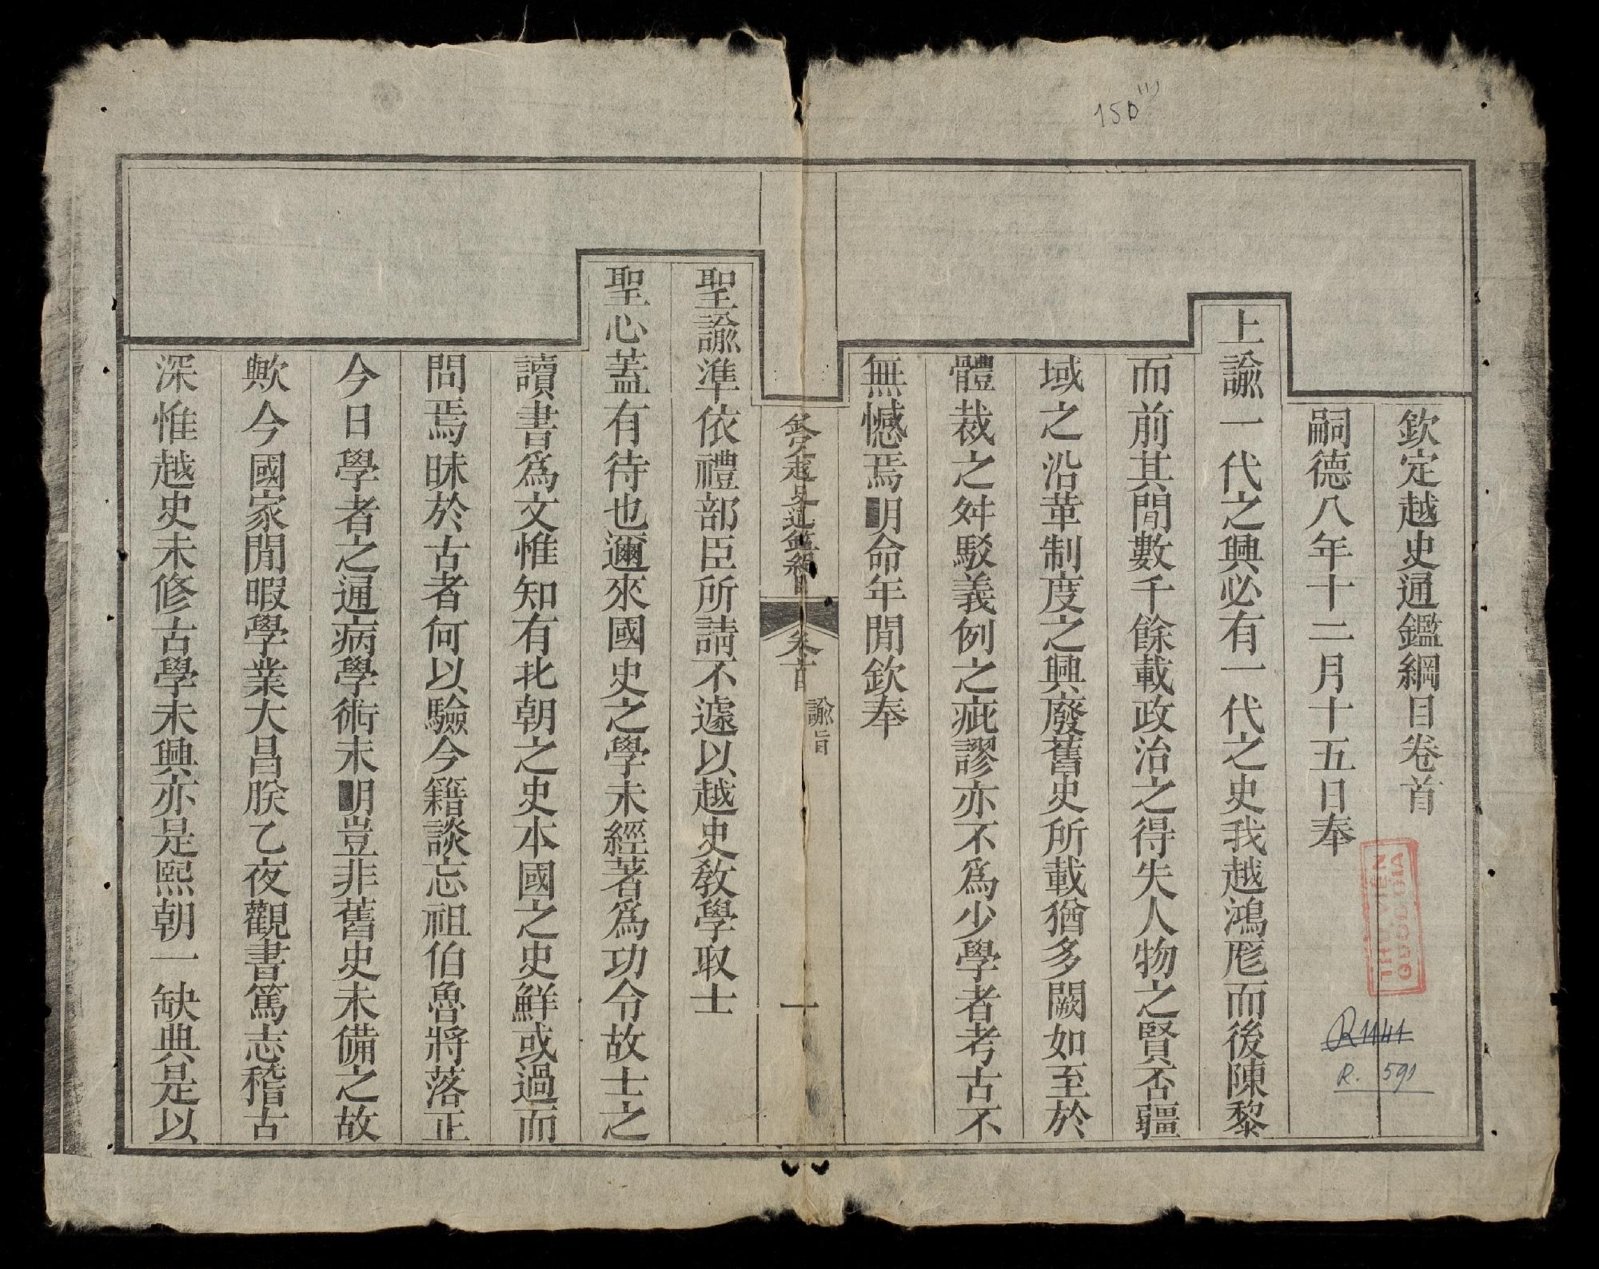 150
欽定越史通鑑綱目卷首
嗣德八年十二月十五日奉
上諭一代之興必有一代之史我越鴻厖而後陳黎
而前其間數千餘載政治之得失人物之賢否疆
域之沿革制度之興廢舊史所載猶多闕如至於
體裁之舛駁義例之疵謬亦不為少學者考古不
無憾焉明命年間欽奉
欽定越史通鑑綱目
卷首
諭旨
一
聖諭準依禮部臣所請不遽以越史敎學取士
聖心蓋有待也邇來國史之學未經著爲功令故士之
讀書爲文惟知有北朝之史本國之史鮮或過而
問焉昧於古者何以驗今籍談忘祖伯魯將落正
今日學者之通病學術未明豈非舊史未備之故
歟今國家閒暇學業大昌朕乙夜觀書篤志稽古
深惟越史未修古學未興亦是熙朝一缺典是以
R 1141
R. 591